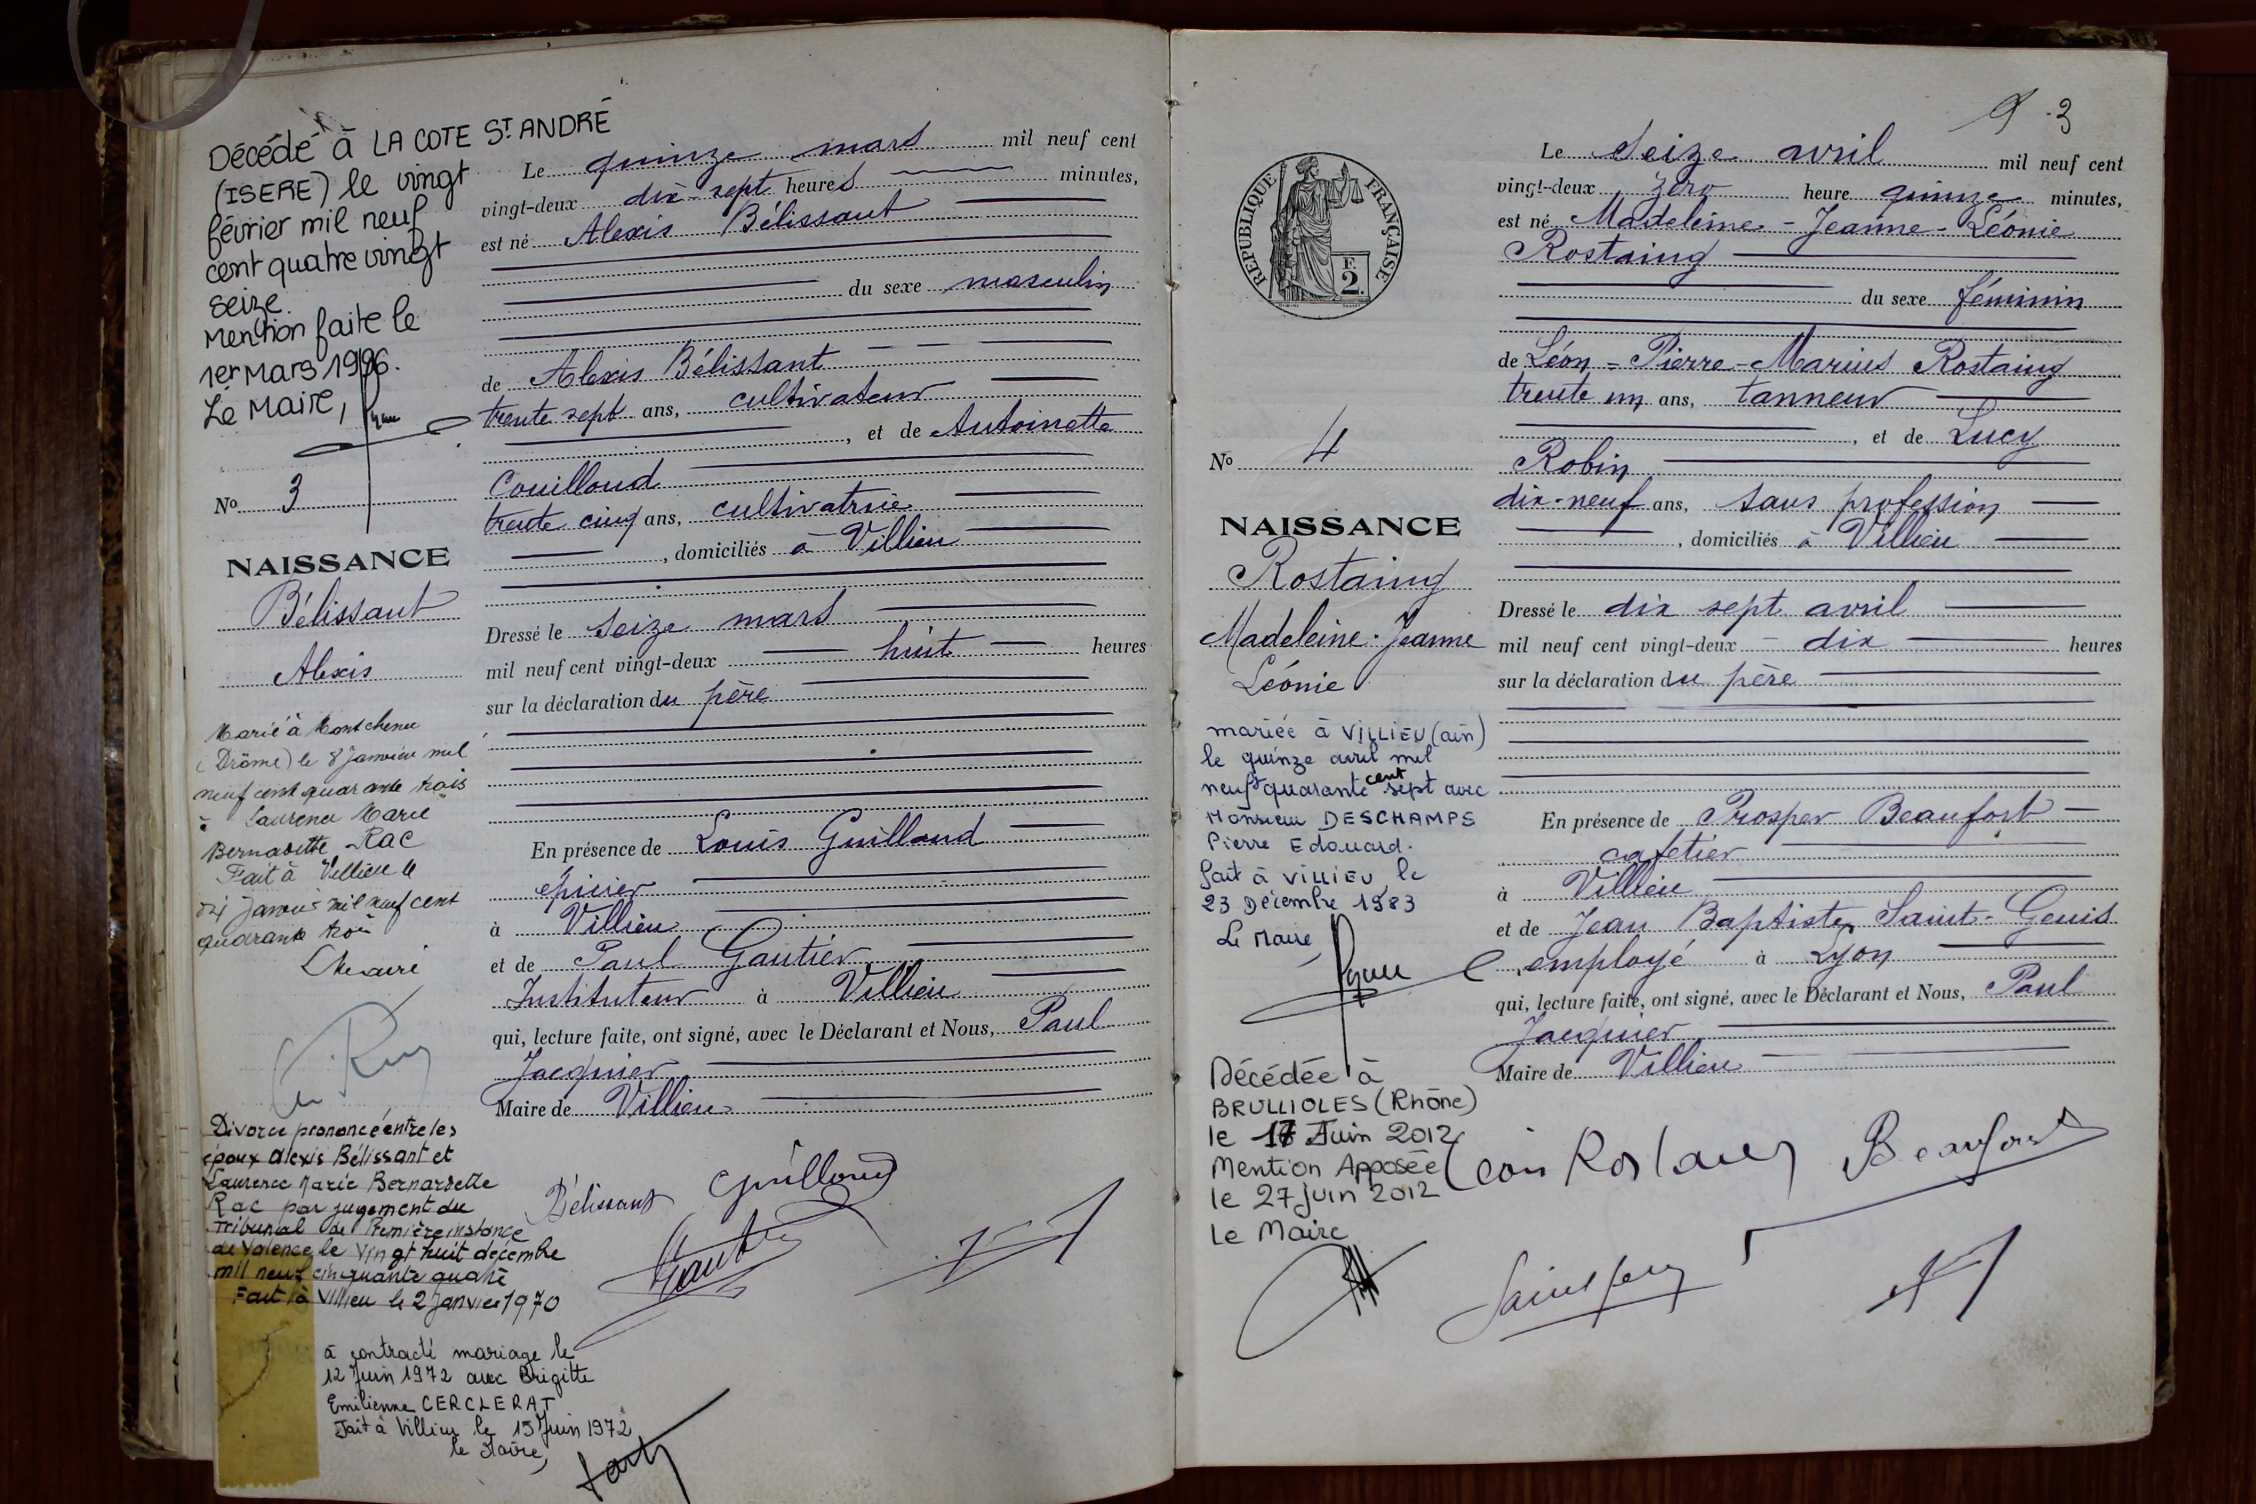 Décédé à LA COTE ST ANDRÉ
(ISERE) le vingt
février mil neuf
cent quatre vingt
seize.
Mention faite le
1er Mars 1996.
Le Maire,
No 3
NAISSANCE
Bélissant
Alexis
Marié à Montchenu
(Drôme) le 8 Janvier mil
neuf cent quarante trois
à Laurence Marie
Bernadette RAC
Fait à Villieu le
dix Janvier mil neuf cent
quarante trois
Le maire
Divorce prononcé entre les
époux Alexis Bélissant et
Laurence Marie Bernardette
Rac par jugement du
Tribunal de Première instance
de Valence le vingt huit décembre
mil neuf cinquante quatre
Fait à Villieu le 2 Janvier 1970
à contracté mariage le
12 Juin 1972 avec Brigitte
Emilienne CERCLERAT
Fait à Villieu le 15 Juin 1972
le Maire,
Le quinze mars mil neuf cent
vingt-deux dix-sept heures minutes,
est né Alexis Bélissant
du sexe masculin
de Alexis Bélissant
trente sept ans, cultivateur
, et de Antoinette
Couilloud
trente cinq ans, cultivatrice
, domiciliés à Villieu
Dressé le seize mars
mil neuf cent vingt-deux huit heures
sur la déclaration du père
En présence de Louis Guilloud
épicier
à Villieu
et de Paul Gautier
Instituteur à Villieu
qui, lecture faite, ont signé, avec le Déclarant et Nous, Paul
Jacquier
Maire de Villieu
Bélissant Guilloud
Gautier
3
RÉPUBLIQUE FRANÇAISE
F.
2.
No 4
NAISSANCE
Rostaing
Madeleine-Jeanne
Léonie
mariée à VILLIEU (ain)
le quinze avril mil
neuf cent quarante sept avec
Monsieur DESCHAMPS
Pierre Edouard.
fait à VILLIEU, le
23 Décembre 1983
Le Maire,
Décédée à
BRULLIOLES (Rhône)
le 17 Juin 2012
Mention Apposée
le 27 juin 2012
Le Maire
Le Seize avril mil neuf cent
vingt-deux zéro heure quinze minutes,
est né Madeleine-Jeanne-Léonie
Rostaing
du sexe féminin
de Léon-Pierre-Marius Rostaing
trente un ans, tanneur
, et de Lucy
Robin
dix-neuf ans, sans profession
, domiciliés à Villieu
Dressé le dix sept avril
mil neuf cent vingt-deux dix heures
sur la déclaration du père
En présence de Prosper Beaufort
cafetier
à Villieu
et de Jean Baptiste Saint-Genis
employé à Lyon
qui, lecture faite, ont signé, avec le Déclarant et Nous, Paul
Jacquier
Maire de Villieu
Léon Rostaing Beaufort